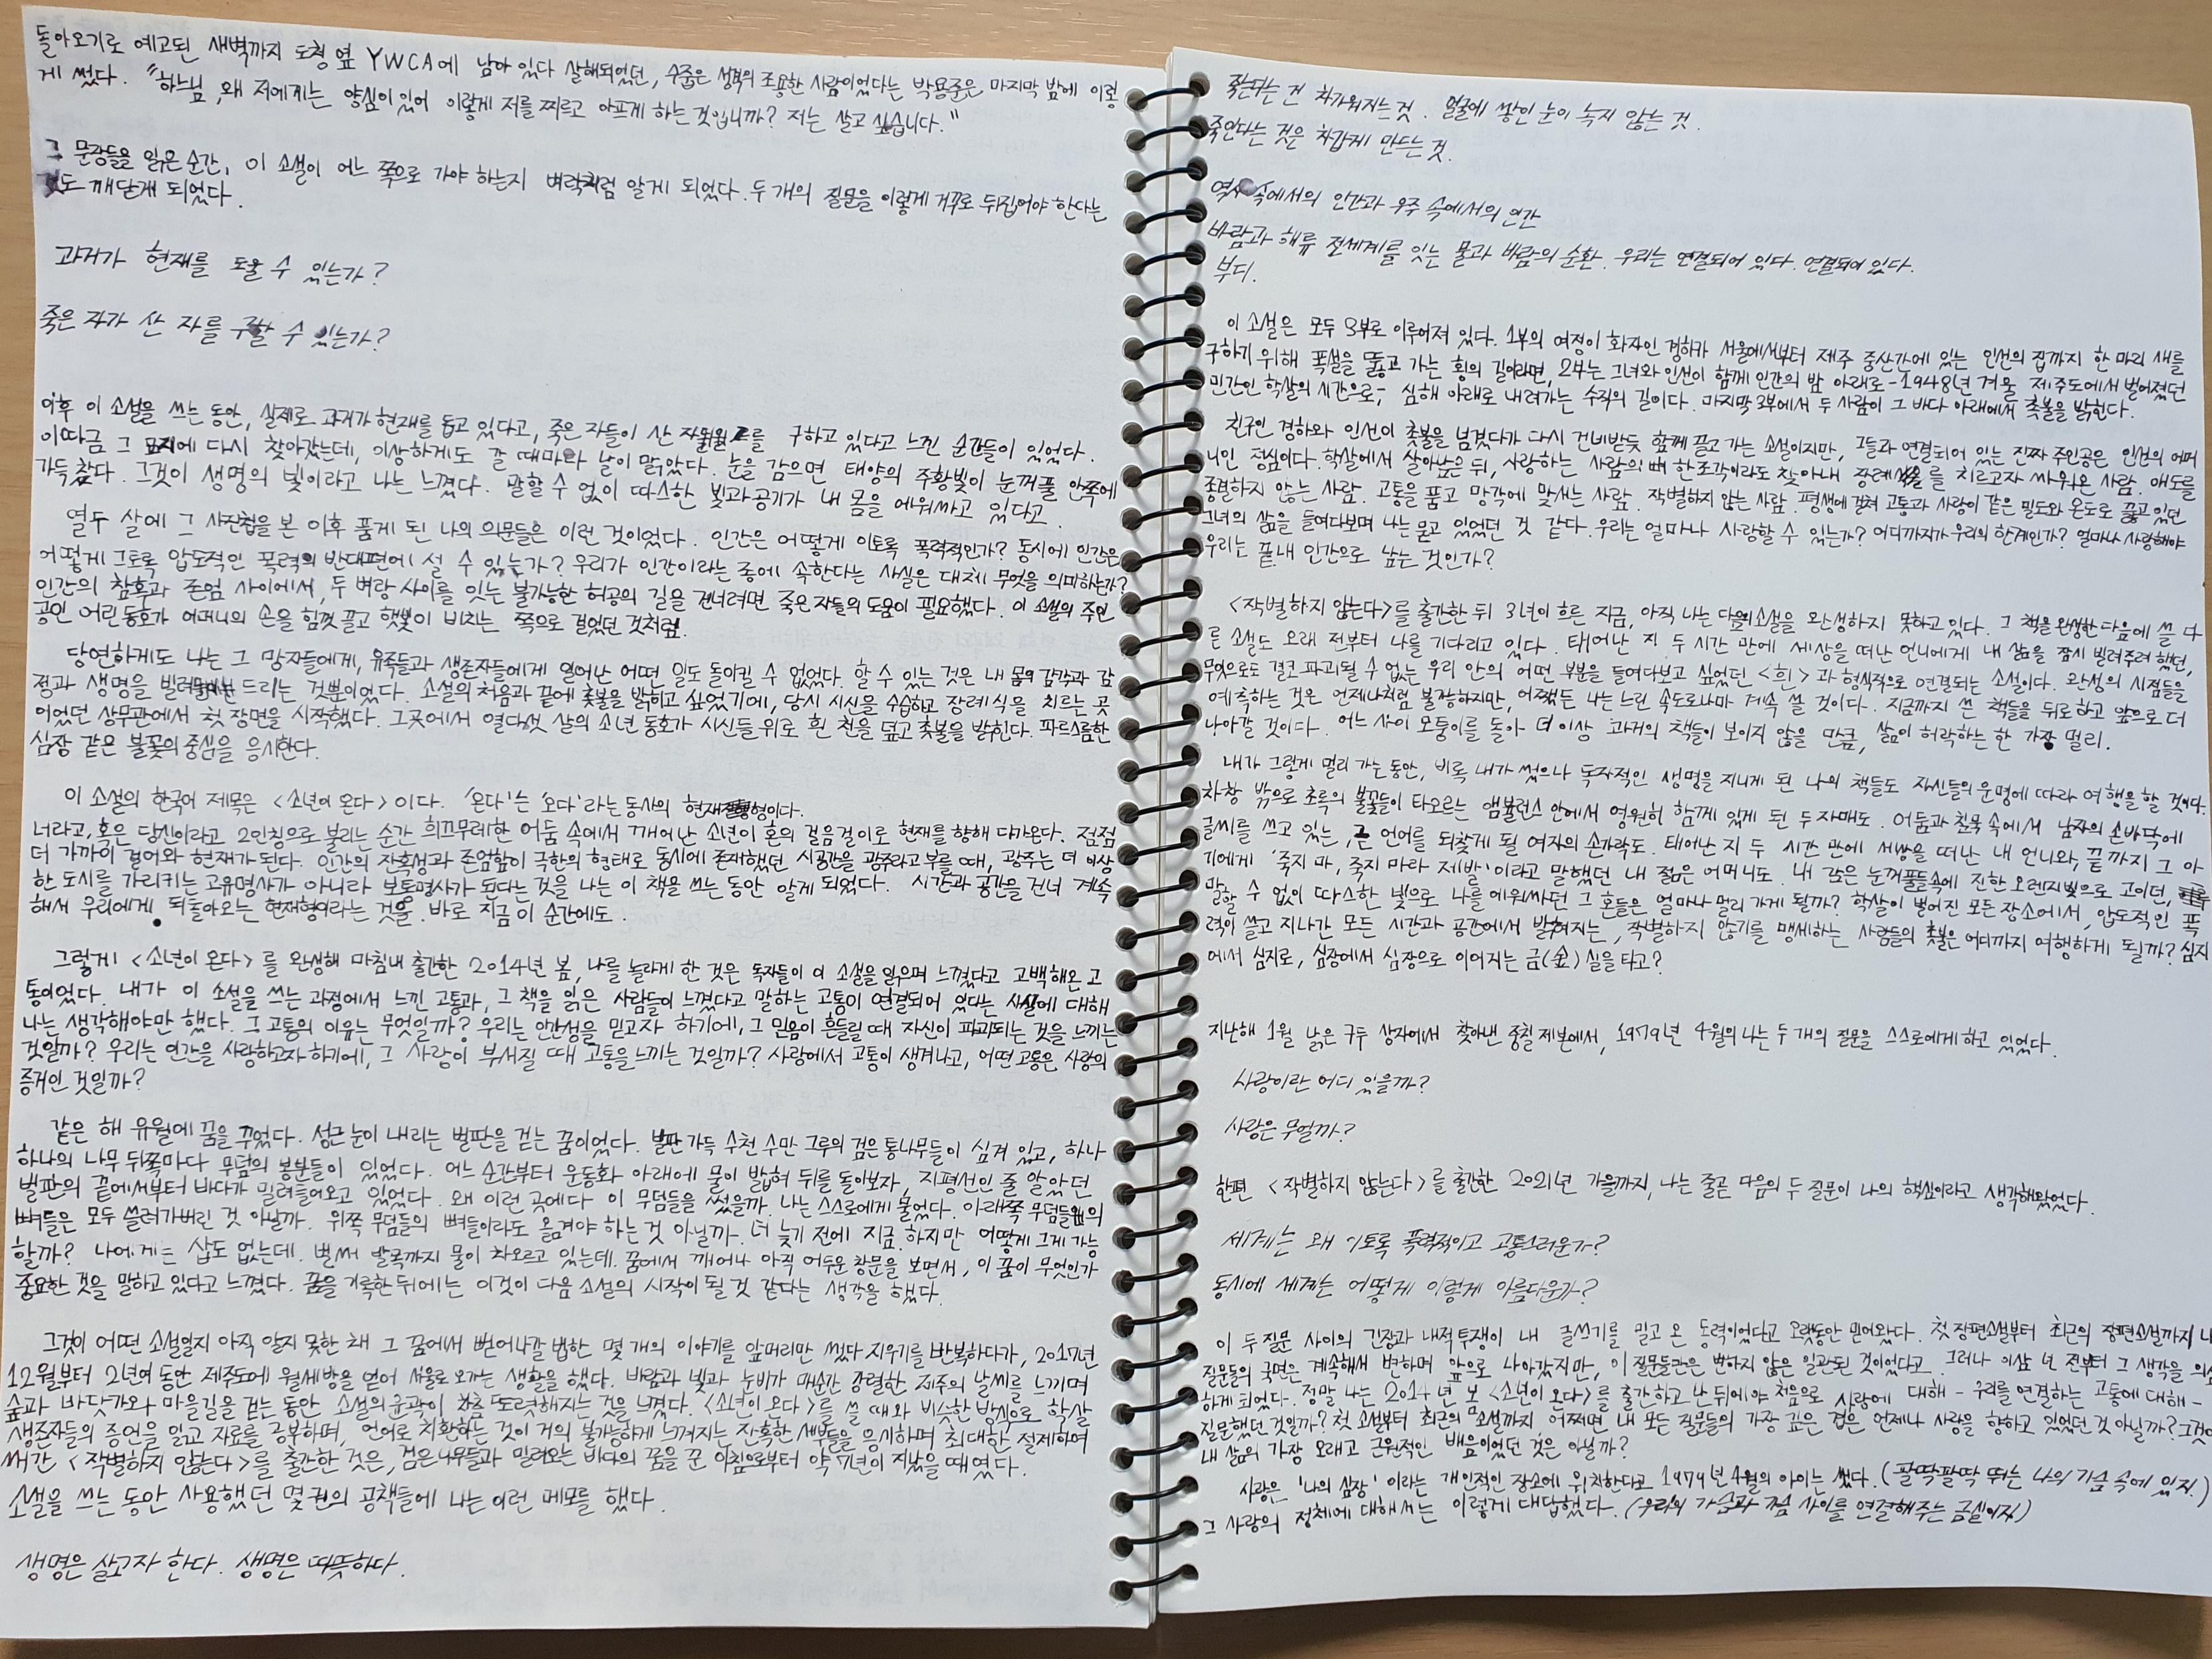 돌아오기로 예고된 새벽까지 도청 옆 YWCA에 남아 있다 살해되었던, 수줍은 성격의 조용한 사람이었다는 박용준은 마지막 밤에 이렇
게 썼다. "하느님, 왜 저에게는 양심이 있어 이렇게 저를 찌르고 아프게 하는 것입니까? 저는 살고 싶습니다."
그 문장들을 읽은 순간, 이 소설이 어느 쪽으로 가야 하는지 벼락처럼 알게 되었다. 두 개의 질문을 이렇게 거꾸로 뒤집어야 한다는
것도 깨닫게 되었다.
과거가 현재를 도울 수 있는가?
죽은 자가 산 자를 구할 수 있는가?
이후 이 소설을 쓰는 동안, 실제로 과거가 현재를 돕고 있다고, 죽은 자들이 산 자를 구하고 있다고 느낀 순간들이 있었다.
이따금 그 묘지에 다시 찾아갔는데, 이상하게도 갈 때마다 날이 맑았다. 눈을 감으면 태양의 주황빛이 눈꺼풀 안쪽에
가득 찼다. 그것이 생명의 빛이라고 나는 느꼈다. 말할 수 없이 따스한 빛과 공기가 내 몸을 에워싸고 있다고.
열두 살에 그 사진첩을 본 이후 품게 된 나의 의문들은 이런 것이었다. 인간은 어떻게 이토록 폭력적인가? 동시에 인간은
어떻게 그토록 압도적인 폭력의 반대편에 설 수 있는가? 우리가 인간이라는 종에 속한다는 사실은 대체 무엇을 의미하는가?
인간의 참혹과 존엄 사이에서, 두 벼랑 사이를 잇는 불가능한 허공의 길을 건너려면 죽은 자들의 도움이 필요했다. 이 소설의 주인
공인 어린 동호가 어머니의 손을 힘껏 끌고 햇빛이 비치는 쪽으로 걸었던 것처럼.
당연하게도 나는 그 망자들에게, 유족들과 생존자들에게 일어난 어떤 일도 돌이킬 수 없었다. 할 수 있는 것은 내 몸의 감각과 감
정과 생명을 빌려 드리는 것뿐이었다. 소설의 처음과 끝에 촛불을 밝히고 싶었기에, 당시 시신을 수습하고 장례식을 치르는 곳
이었던 상무관에서 첫 장면을 시작했다. 그곳에서 열다섯 살의 소년 동호가 시신들 위로 흰 천을 덮고 촛불을 밝힌다. 파르스름한
심장 같은 불꽃의 중심을 응시한다.
이 소설의 한국어 제목은 <소년이 온다>이다. '온다'는 '오다'라는 동사의 현재형이다.
너라고, 혹은 당신이라고 2인칭으로 불리는 순간 희끄무레한 어둠 속에서 깨어난 소년이 혼의 걸음걸이로 현재를 향해 다가온다. 점점
더 가까이 걸어와 현재가 된다. 인간의 잔혹성과 존엄함이 극한의 형태로 동시에 존재했던 시공간을 광주라고 부를 때, 광주는 더 이상
한 도시를 가리키는 고유명사가 아니라 보통명사가 된다는 것을 나는 이 책을 쓰는 동안 알게 되었다. 시간과 공간을 건너 계속
해서 우리에게 되돌아오는 현재형이라는 것을. 바로 지금 이 순간에도.
그렇게 <소년이 온다>를 완성해 마침내 출간한 2014년 봄, 나를 놀라게 한 것은 독자들이 이 소설을 읽으며 느꼈다고 고백해온 고
통이었다. 내가 이 소설을 쓰는 과정에서 느낀 고통과, 그 책을 읽은 사람들이 느꼈다고 말하는 고통이 연결되어 있다는 사실에 대해
나는 생각해야만 했다. 그 고통의 이유는 무엇일까? 우리는 인간성을 믿고자 하기에, 그 믿음이 흔들릴 때 자신이 파괴되는 것을 느끼는
것일까? 우리는 인간을 사랑하고자 하기에, 그 사랑이 부서질 때 고통을 느끼는 것일까? 사랑에서 고통이 생겨나고, 어떤 고통은 사랑의
증거인 것일까?
같은 해 유월에 꿈을 꾸었다. 성근 눈이 내리는 벌판을 걷는 꿈이었다. 벌판 가득 수천 수만 그루의 검은 통나무들이 심겨 있고, 하나
하나의 나무 뒤쪽마다 무덤의 봉분들이 있었다. 어느 순간부터 운동화 아래에 물이 밟혀 뒤를 돌아보자, 지평선인 줄 알았던
벌판의 끝에서부터 바다가 밀려들어오고 있었다. 왜 이런 곳에다 이 무덤들을 썼을까. 나는 스스로에게 물었다. 아래쪽 무덤들의
뼈들은 모두 쓸려가버린 것 아닐까. 위쪽 무덤들의 뼈들이라도 옮겨야 하는 것 아닐까. 더 늦기 전에 지금. 하지만 어떻게 그게 가능
할까? 나에게는 삽도 없는데. 벌써 발목까지 물이 차오르고 있는데. 꿈에서 깨어나 아직 어두운 창문을 보면서, 이 꿈이 무엇인가
중요한 것을 말하고 있다고 느꼈다. 꿈을 기록한 뒤에는 이것이 다음 소설의 시작이 될 것 같다는 생각을 했다.
그것이 어떤 소설일지 아직 알지 못한 채 그 꿈에서 뻗어나갈 법한 몇 개의 이야기를 앞머리만 썼다 지우기를 반복하다가, 2017년
12월부터 2년여 동안 제주도에 월세방을 얻어 서울로 오가는 생활을 했다. 바람과 빛과 눈비가 매순간 강렬한 제주의 날씨를 느끼며
숲과 바닷가와 마을길을 걷는 동안 소설의 윤곽이 차츰 또렷해지는 것을 느꼈다. <소년이 온다>를 쓸 때와 비슷한 방식으로 학살
생존자들의 증언을 읽고 자료를 공부하며, 언어로 치환하는 것이 거의 불가능하게 느껴지는 잔혹한 세부들을 응시하며 최대한 절제하여
써간 <작별하지 않는다>를 출간한 것은, 검은 나무들과 밀려오는 바다의 꿈을 꾼 아침으로부터 약 7년이 지났을 때였다.
소설을 쓰는 동안 사용했던 몇 권의 공책들에 나는 이런 메모를 했다.
생명은 살고자 한다. 생명은 따뜻하다.
죽는다는 건 차가워지는 것. 얼굴에 쌓인 눈이 녹지 않는 것.
죽인다는 것은 차갑게 만드는 것.
역사 속에서의 인간과 우주 속에서의 인간
바람과 해류 전세계를 잇는 물과 바람의 순환. 우리는 연결되어 있다. 연결되어 있다.
부디.
이 소설은 모두 3부로 이루어져 있다. 1부의 여정이 화자인 경하가 서울에서부터 제주 중산간에 있는 인선의 집까지 한 마리 새를
구하기 위해 폭설을 뚫고 가는 횡의 길이라면, 2부는 그녀와 인선이 함께 인간의 밤 아래로-1948년 겨울 제주도에서 벌어졌던
민간인 학살의 시간으로-, 심해 아래로 내려가는 수직의 길이다. 마지막 3부에서 두 사람이 그 바다 아래에서 촛불을 밝힌다.
친구인 경하와 인선이 촛불을 넘겼다가 다시 건네받듯 함께 끌고 가는 소설이지만, 그들과 연결되어 있는 진짜 주인공은 인선의 어머
니인 정심이다. 학살에서 살아남은 뒤, 사랑하는 사람의 뼈 한조각이라도 찾아내 장례식을 를 치르고자 싸워온 사람. 애도를
종결하지 않는 사람. 고통을 품고 망각에 맞서는 사람. 작별하지 않는 사람. 평생에 걸쳐 고통과 사랑이 같은 밀도와 온도로 끓고 있던
그녀의 삶을 들여다보며 나는 묻고 있었던 것 같다. 우리는 얼마나 사랑할 수 있는가? 어디까지가 우리의 한계인가? 얼마나 사랑해야
우리는 끝내 인간으로 남는 것인가?
<작별하지 않는다>를 출간한 뒤 3년이 흐른 지금, 아직 나는 다음의 소설을 완성하지 못하고 있다. 그 책을 완성한 다음에 쓸 다
른 소설도 오래 전부터 나를 기다리고 있다. 태어난 지 두 시간 만에 세상을 떠난 언니에게 내 삶을 잠시 빌려주려 했던,
무엇으로도 결코 파괴될 수 없는 우리 안의 어떤 부분을 들여다보고 싶었던 <흰>과 형식적으로 연결되는 소설이다. 완성의 시점들을
예측하는 것은 언제나처럼 불가능하지만, 어쨌든 나는 느린 속도로나마 계속 쓸 것이다. 지금까지 쓴 책들을 뒤로하고 앞으로 더
나아갈 것이다. 어느 사이 모퉁이를 돌아 더 이상 과거의 책들이 보이지 않을 만큼, 삶이 허락하는 한 가장 멀리.
내가 그렇게 멀리 가는 동안, 비록 내가 썼으나 독자적인 생명을 지니게 된 나의 책들도 자신들의 운명에 따라 여행을 할 것이다.
차창 밖으로 초록의 불꽃들이 타오르는 앰뷸런스 안에서 영원히 함께 있게 된 두 자매도. 어둠과 침묵 속에서 남자의 손바닥에
글씨를 쓰고 있는, 곧 언어를 되찾게 될 여자의 손가락도. 태어난 지 두 시간 만에 세상을 떠난 내 언니와, 끝까지 그 아
기에게 '죽지 마, 죽지 마라 제발'이라고 말했던 내 젊은 어머니도. 내 감은 눈꺼풀들 속에 진한 오렌지빛으로 고이던,
말할 수 없이 따스한 빛으로 나를 에워싸던 그 혼들은 얼마나 멀리 가게 될까? 학살이 벌어진 모든 장소에서, 압도적인 폭
력이 쓸고 지나간 모든 시간과 공간에서 밝혀지는, 작별하지 않기를 맹세하는 사람들의 촛불은 어디까지 여행하게 될까? 심지
에서 심지로, 심장에서 심장으로 이어지는 금(金)실을 타고?
지난해 1월 낡은 구두 상자에서 찾아낸 중철 제본에서, 1979년 4월의 나는 두 개의 질문을 스스로에게 하고 있었다.
사랑이란 어디 있을까?
사랑은 무얼까?
한편 <작별하지 않는다>를 출간한 2021년 가을까지, 나는 줄곧 다음의 두 질문이 나의 핵심이라고 생각해왔었다.
세계는 왜 이토록 폭력적이고 고통스러운가?
동시에 세계는 어떻게 이렇게 아름다운가?
이 두 질문 사이의 긴장과 내적 투쟁이 내 글쓰기를 밀고 온 동력이었다고 오랫동안 믿어왔다. 첫 장편소설부터 최근의 장편소설까지 내
질문들의 국면은 계속해서 변하며 앞으로 나아갔지만, 이 질문들만은 변하지 않은 일관된 것이었다고. 그러나 이삼 년 전부터 그 생각을 의심
하게 되었다. 정말 나는 2014년 봄 <소년이 온다>를 출간하고 난 뒤에야 처음으로 사랑에 대해 - 우리를 연결하는 고통에 대해 -
질문했던 것일까? 첫 소설부터 최근의 소설까지, 어쩌면 내 모든 질문들의 가장 깊은 겹은 언제나 사랑을 향하고 있었던 것 아닐까? 그것이
내 삶의 가장 오래고 근원적인 배음이었던 것은 아닐까?
사랑은 '나의 심장'이라는 개인적인 장소에 위치한다고 1979년 4월의 아이는 썼다. (팔딱팔딱 뛰는 나의 가슴 속에 있지.)
그 사랑의 정체에 대해서는 이렇게 대답했다. (우리의 가슴과 가슴 사이를 연결해주는 금실이지)